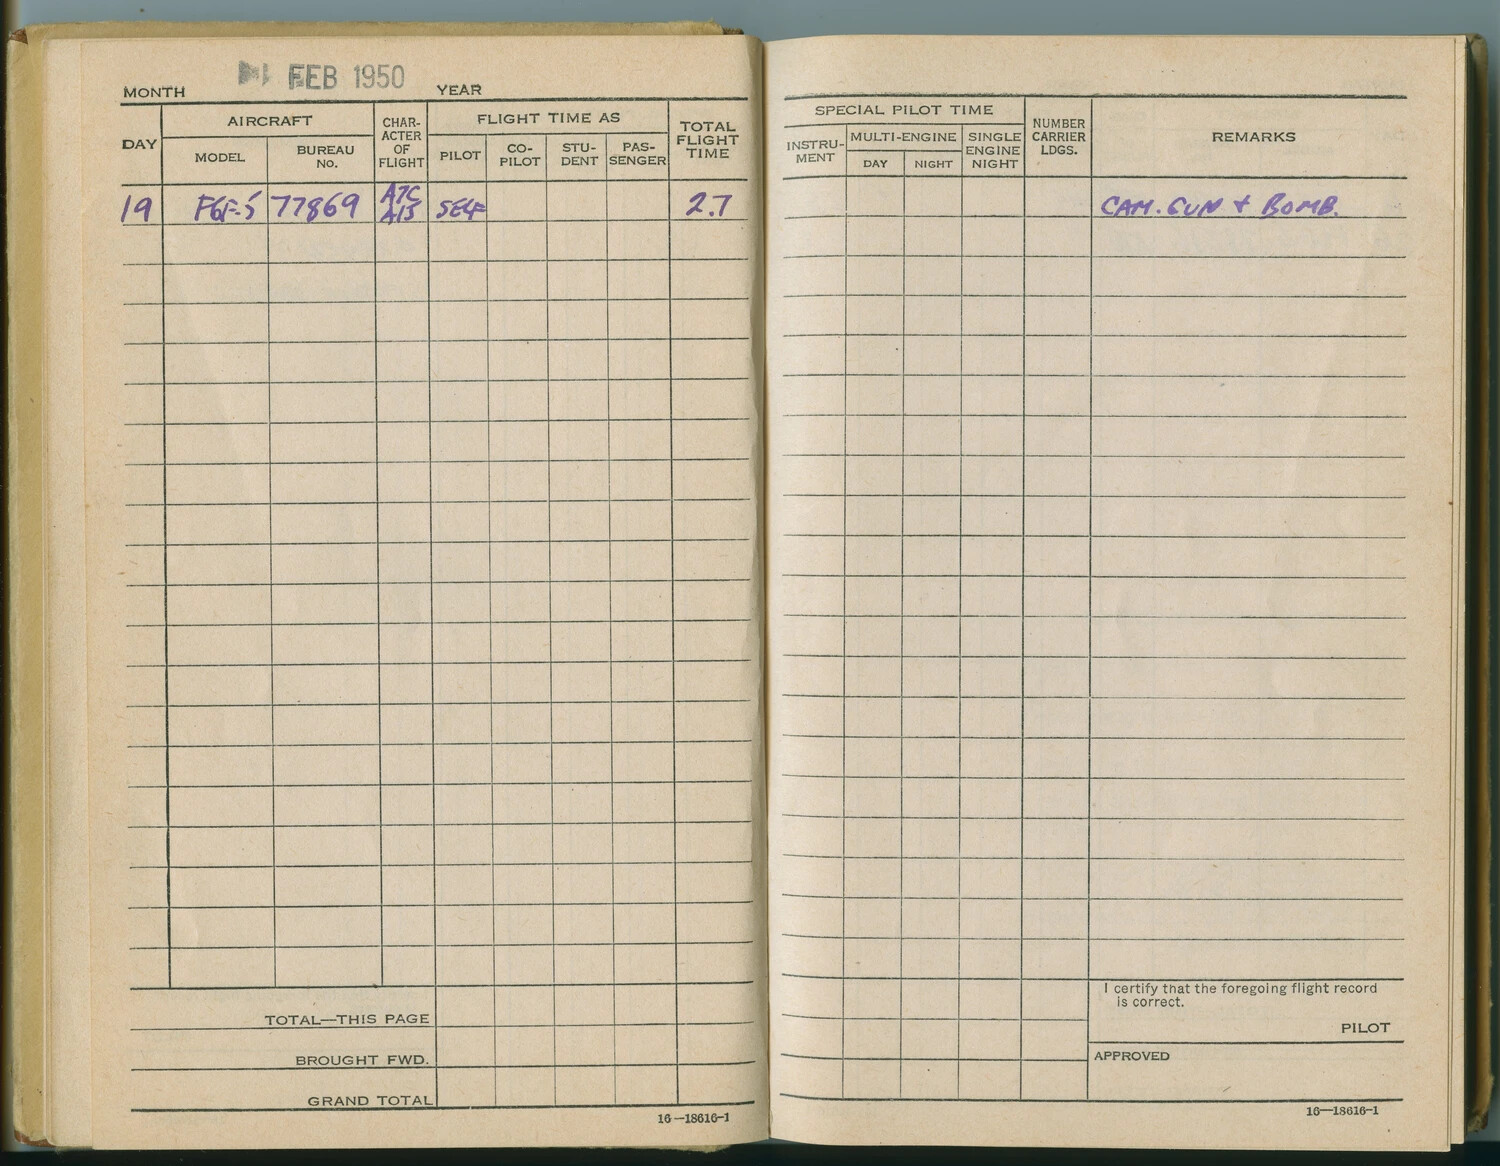 MONTH FEB 1950 YEAR
DAY
AIRCRAFT
MODEL
BUREAU No.
CHAR-ACTER OF FLIGHT
FLIGHT TIME AS
PILOT
CO-PILOT
STU-DENT
PAS-SENGER
TOTAL FLIGHT TIME
19 F6F-5 77869 A7C A15 SELF 2.7
TOTAL—THIS PAGE
BROUGHT FWD.
GRAND TOTAL
16—18616-1
SPECIAL PILOT TIME
INSTRU-MENT
MULTI-ENGINE
DAY
NIGHT
SINGLE ENGINE NIGHT
NUMBER CARRIER LDGS.
REMARKS
CAM. GUN + BOMB.
I certify that the foregoing flight record
is correct.
PILOT
APPROVED
16—18616-1